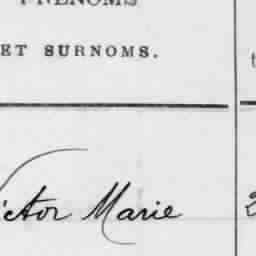 PRÉNOMS
ET SURNOMS.
Victor Marie